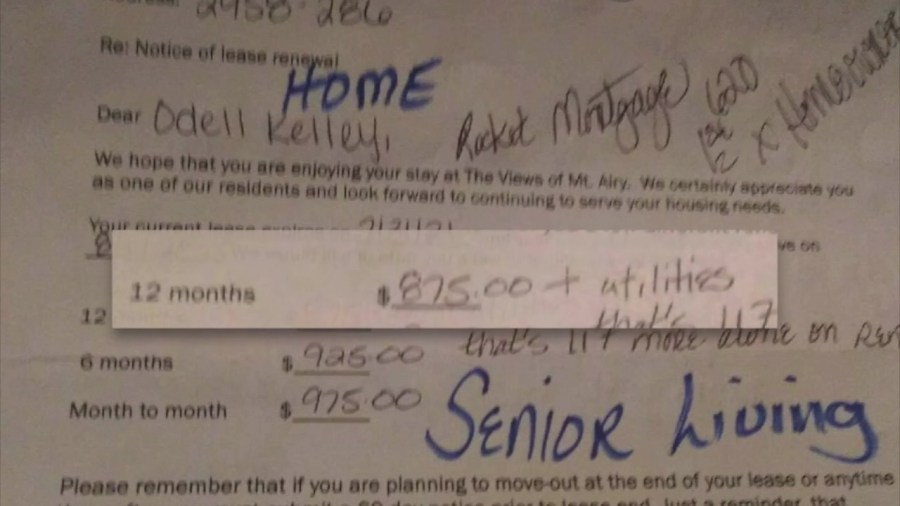 2958-2860
Re: Notice of lease renewal
HOME
Dear Odell Kelley,
Rocket Mortgage
620
x Homeowner
We hope that you are enjoying your stay at The Views of Mt. Airy. We certainly appreciate you
as one of our residents and look forward to continuing to serve your housing needs.
Your current lease expires on
12 months $875.00 + utilities
12
that's 117 more alone on
6 months $925.00
Month to month $975.00
SENIOR Living
Please remember that if you are planning to move-out at the end of your lease or anytime